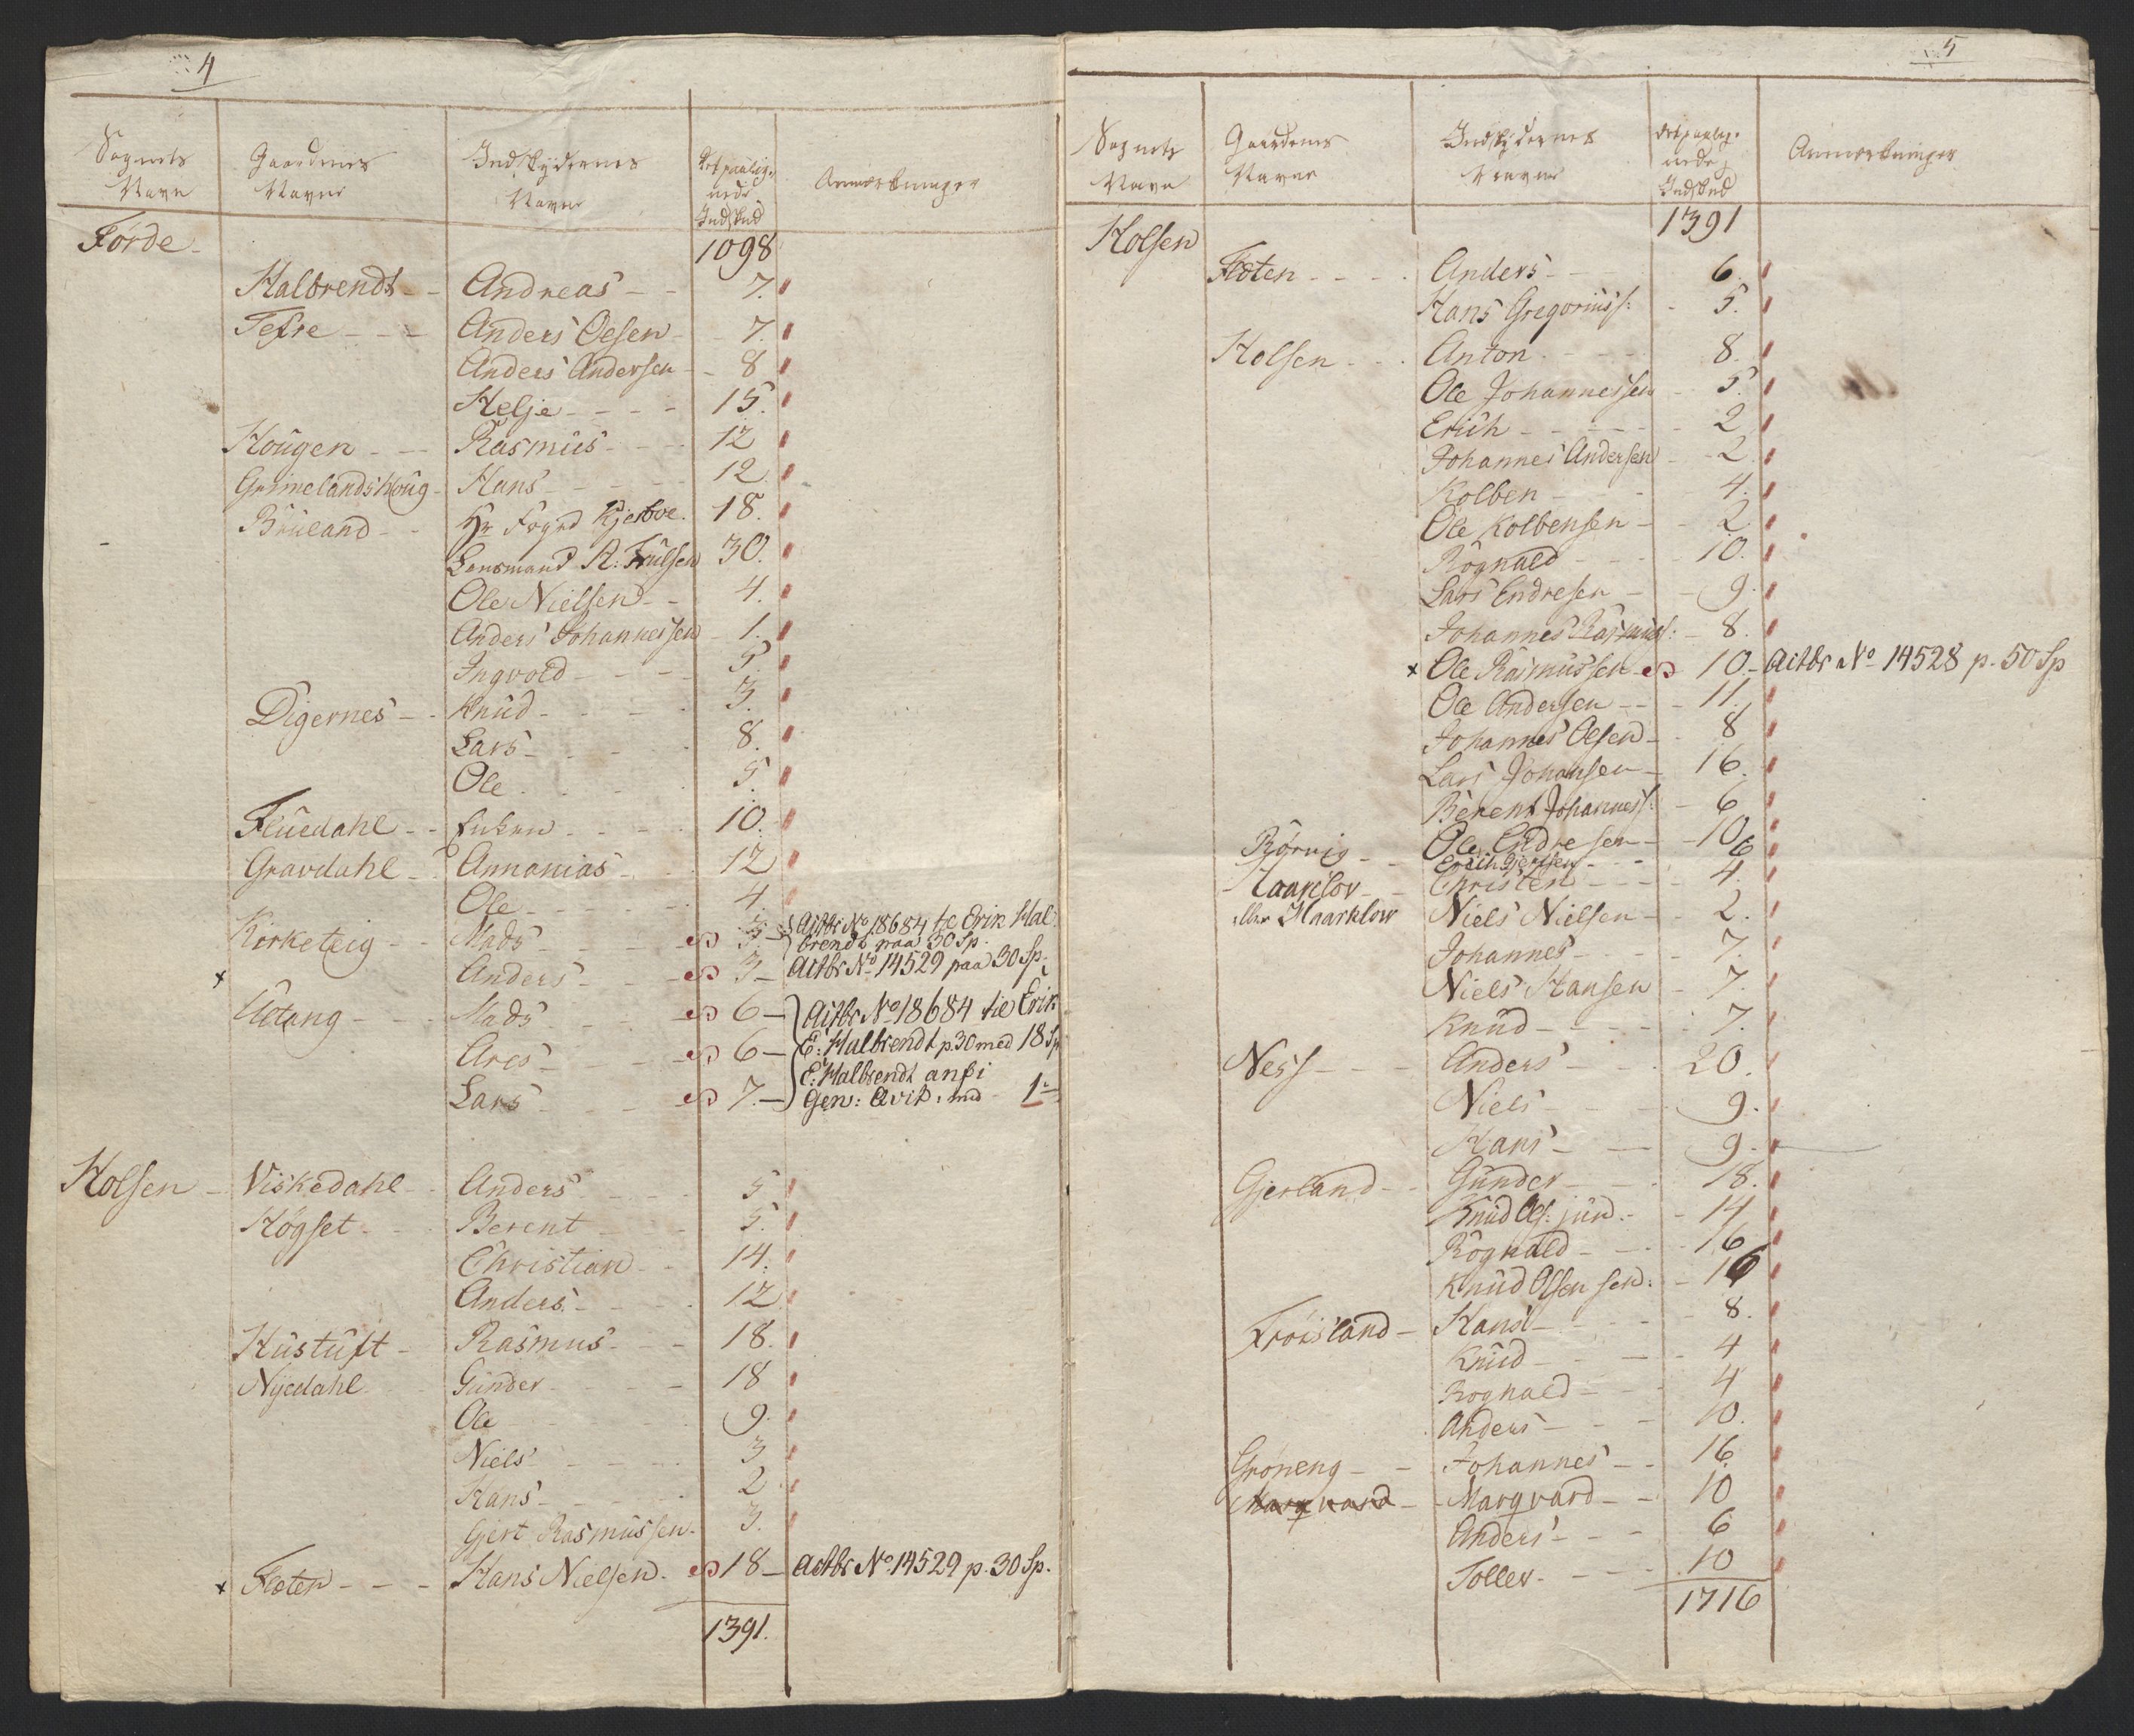 4
Sognets Navn | Gaardenes Navne | Indskydernes Navne | Det paalignede Indskud | Anmærkninger
Førde - 1098
Halbrendt - - Andreas - - 7.
Tefre - - - Anders Olsen - 7.
Anders Andersen - - 8
Helje - - - - 15.
Hougen - - - Rasmus - - - 12
Grimelandshoug - Hans - - - - 12
Bruland - - Hr Fogd Kjerboe. 18.
Lensmand A: Trulsen 30.
Ole Nielsen - - 4.
Anders Johannessen - 1.
Ingvold - - - - 5.
Digernes - - Knud - - - - 3.
Lars - - - - 8.
Ole - - - - 5.
Fluedahl - - Enken - - - - 10.
Gravdahl - - Annanias - - - 12
Ole - - - - - 4.
Kirketeig - - Mads - - - - 3. - Actbr No 18684 til Erik Halbrendt paa 30 Sp.
x Anders - - - 3 - Actbr No 14529 paa 30 Sp.
Utang - - - Mads - - - - 6 - Actbr No 18684 til Erik
Ares - - - - 6 - E: Halbrendt p. 30 med 18 Sp
E: Halbrendt
Lars - - - - 7. - Gen: Qvit: med 1
Holsen - Viskedahl - - Anders - - - 5
Høgset - - - Berent - - - 5.
Christian - - 14.
Anders - - - - 12
Hustuft - Rasmus - - - 18.
Nyedahl Gunder - - - - 18
Ole - - - - - 9.
Niels - - - - 3
Hans - - - - - 2
Gjert Rasmussen - 3.
x Floten - - - Hans Nielsen - 18 - Actbr No 14529 p. 30 Sp.
1391.
5
Sognets Navn | Gaardenes Navne | Indskydernes Navne | Det paalignede Indskud | Anmærkninger
Holsen 1391
Floten - - - - Anders - - - 6.
Hans Gregoriuss: - 5.
Holsen - - - Anton - - - - 8.
Ole Johannessen - 5.
Erich - - - - - - 2
Johannes Andersen - 2.
Kolben - - - - 4.
Ole Kolbensen - - 2.
Rognald - - - - 10.
Lars Endresen - - 9.
Johannes Rasmuss: - 8.
x Ole Rasmussen - 10 - Actbr No 14528 p. 50 Sp
Ole Andersen - - - 11.
Johannes Olsen - - 8
Lars Johansen - 16.
Berent Johanness: - 6
Rørvig - - Ole Endresen - - 10
Erich Gjertsen - - - 6
Haarklov - - Christen - - - - 4.
eller Haarklow Niels Nielsen - - 2.
Johannes - - - - 7.
Niels Hansen - 7.
Knud - - - - - 7.
Ness - - - - Anders - - - 20.
Niels - - - - 9.
Hans - - - 9.
Gjerland - - Gunder - - - 18.
Knud Ols: jun: - - 14
Rognald - - - 16
Knud Olsen sen: - 16
Frøisland - Hans - - - - - 8.
Knud - - - - 4
Rognald - - - 4
Anders - - - 10.
Grøneng - - Johannes - - 16
Marqvard - Marqvard - - 10
Anders - - - 6
Toller - - - - 10
1716